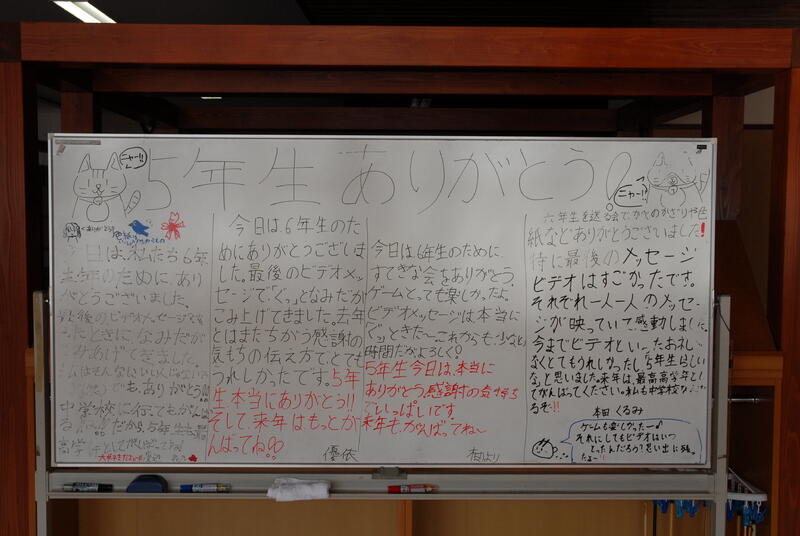 5年生 ありがとう!
ニャー!!
ニャー!!
日は、私たち6年
生のために、あり
がとうございました。
最後のビデオメッセージを見
たときになみだが
こみあげてきました。
でも、ありがとう
中学校に行ってもがんば
だから、5年生も最
高学年としてがんばってね
今日は、6年生のた
めにありがとうございま
した。最後のビデオメッ
セージで「ぐっ」となみだが
こみ上げてきました。去年
とはまたちがう感謝の
気もちの伝え方で、とても
うれしかったです。5年
生本当にありがとう!!
そして、来年はもっとが
んばってね
優依
今日は、6年生のために、
すてきな会をありがとう。
ゲームとっても楽しかったよ。
ビデオメッセージは本当に
ぐっときた~これからも少ない
時間だがよろしく?
5年生今日は、本当に
ありがとう、感謝の気持ち
でいっぱいです
来年も、がんばってね~
六年生を送る会でかべのかざりや色
紙などありがとうございました!
特に最後のメッセージ
ビデオはすごかったです。
それぞれ一人一人のメッセー
ジが映っていて感動しました。
今までビデオといったおれし
なくとてもうれしかったし、5年生らしい
なと思いました。来年は、最高高学年とし
てがんばってください。私も中学校
るぞ!!
本田 くるみ
ゲームも楽しかったー♪
それにしてもビデオはいつ
とったんだろの?思い出に残っ
たよー!